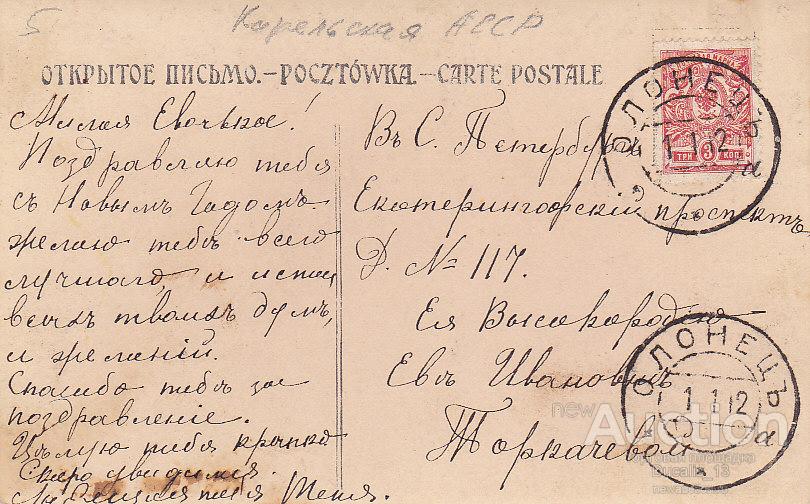 5 Карельская АССР
ОТКРЫТОЕ ПИСЬМО.–POCZTÓWKA.–CARTE POSTALE
Милая Евочька!
Поздравляю тебя
съ Новымъ Годомъ.
желаю тебѣ всего
лучшаго, и
всѣхъ твоихъ думъ,
и желаній.
Спасибо тебѣ за
поздравленіе.
Цѣлую тебя крѣпко
Скоро увидимся.
Любящая тебя Женя.
Въ С. Петербургъ
Екатерингофскій проспектъ
Д. № 117.
Ея Высокородію
Евѣ Ивановнѣ
Торкачевой
ТРИ 3 КОП.
ОЛОНЕЦЪ
1 1 12
а
ОЛОНЕЦЪ
1 1 12
а
newAuction
торговая площадка
Ducalis_13